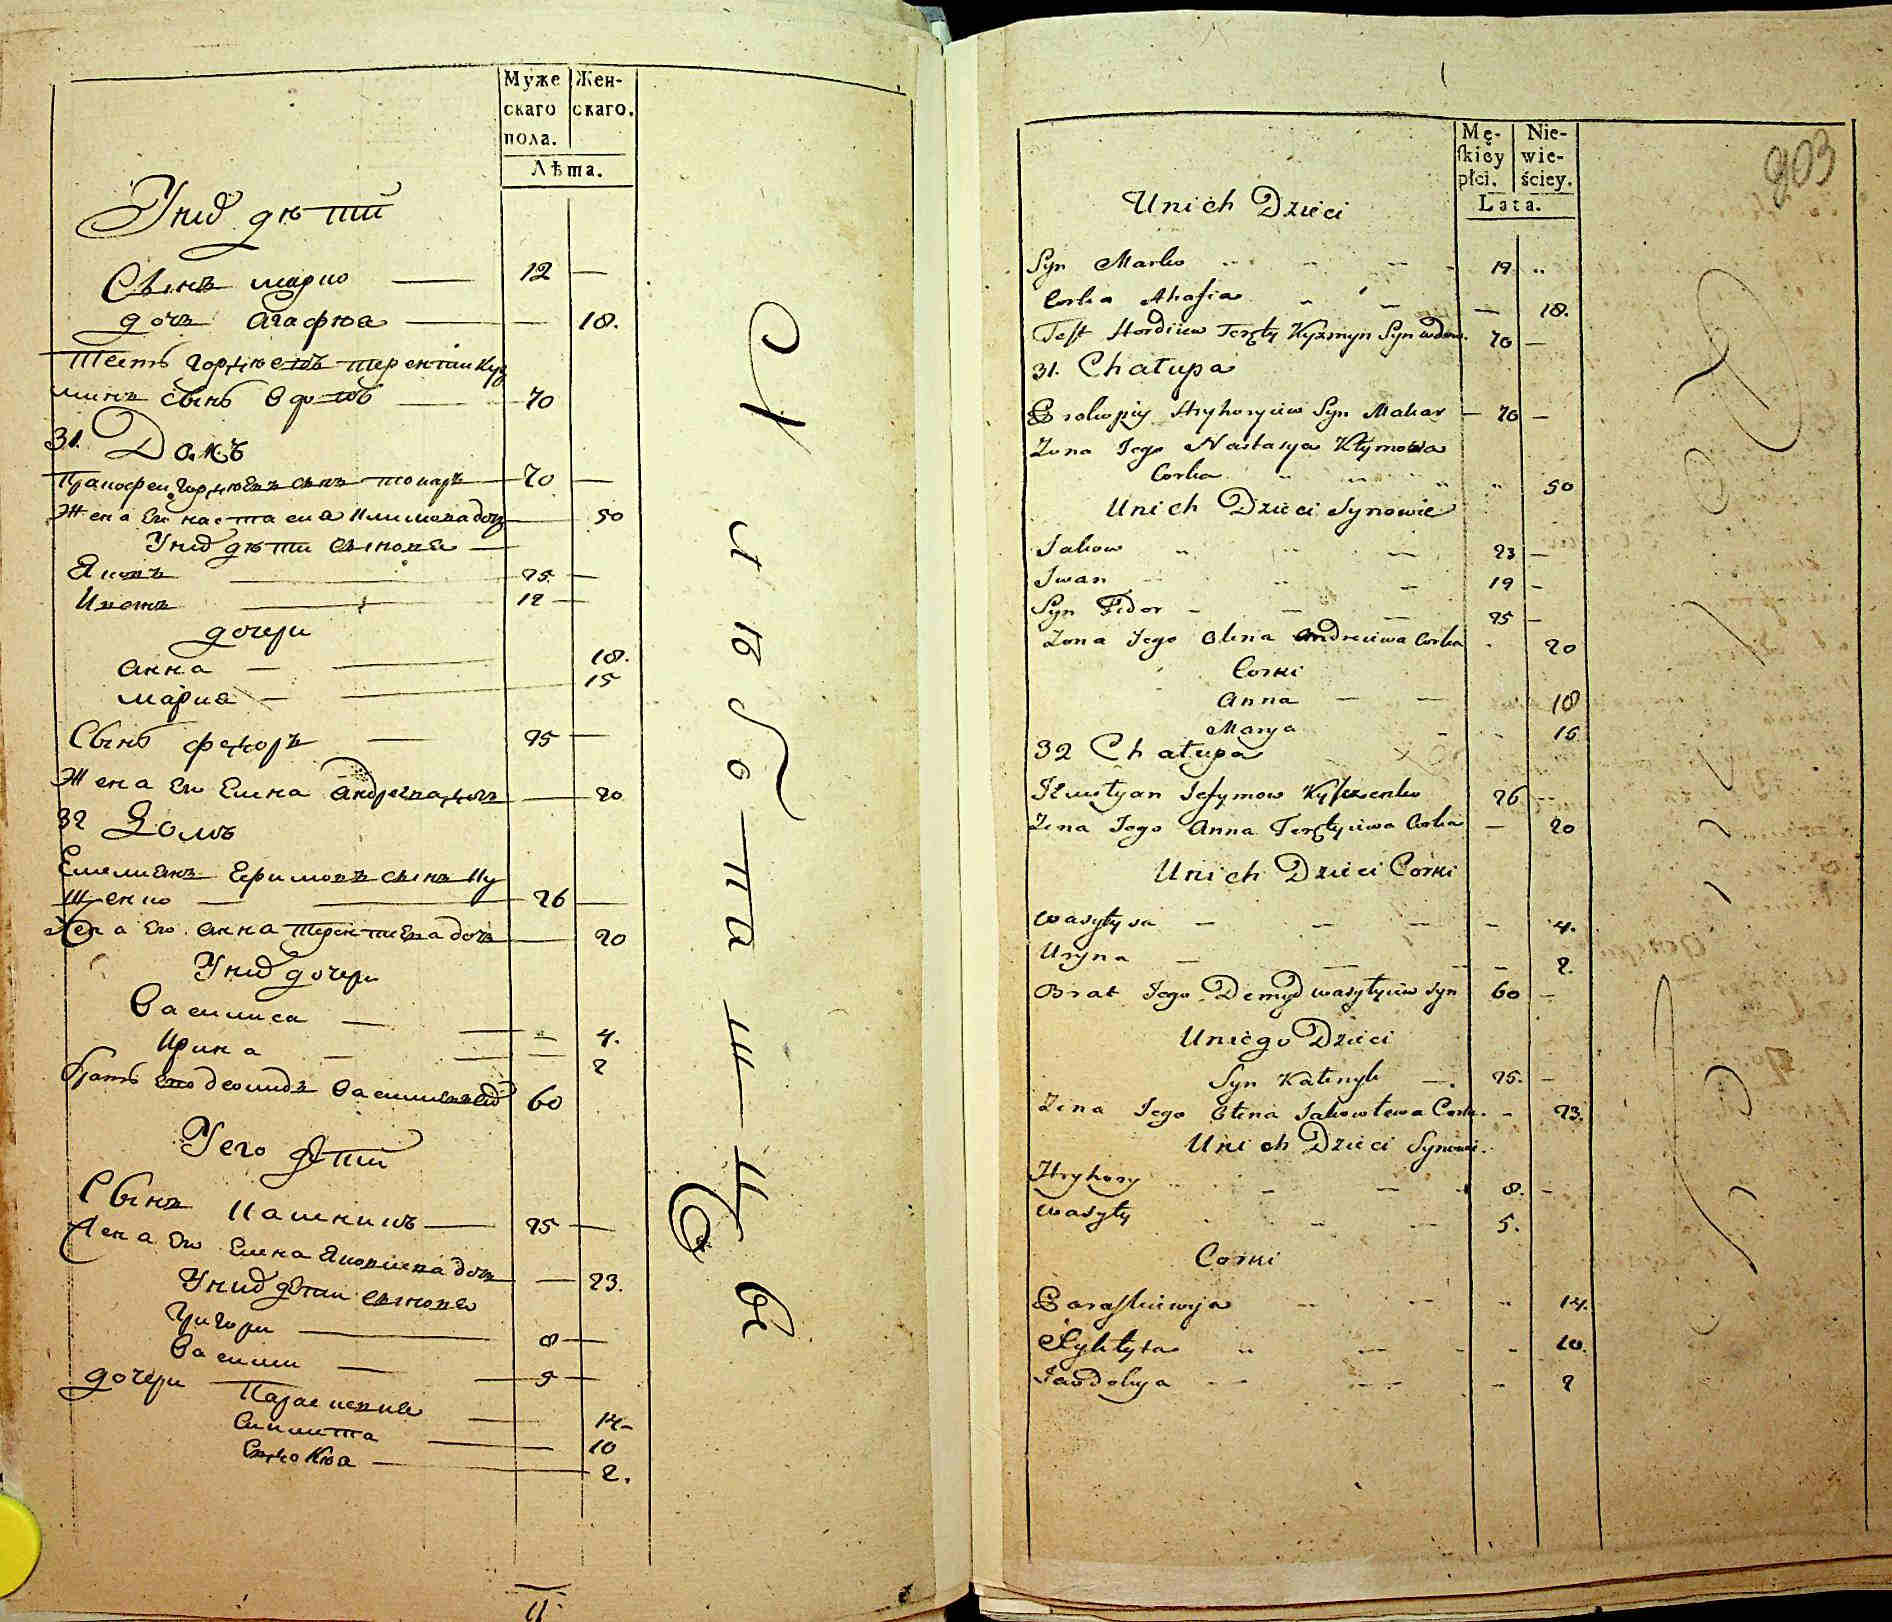 Муже
скаго
пола.
Жен-
скаго.
Лѣта.
Унихъ дѣти
Сынъ марко 12 —
дочь агафия — 18.
тесть гордѣевъ терентий Куз
минъ сынъ вдовъ 70
31. Домъ
70 —
Жена Его настасия климова дочь 50
Унихъ дѣти сыновя
Яковъ 25 —
Иванъ 12 —
дочери
анна 18.
мария 15
Сынъ федоръ 25 —
Жена Его Елена андреева дочь 20
32 Домъ
Емелианъ Ефимовъ сынъ Ку
щенко 26 —
Жена Его анна терентиева дочь 20
Унихъ дочери
Василиса 4.
Ирина 2
братъ Его демидъ 60
Унего дѣти
Сынъ калиникъ 25 —
Жена Его Елена Яковлева дочь — 23.
Унихъ дѣти сыновя
Григори 8 —
Васили 5 —
дочери Параскевия 14
10
Евдокия 2.
Mę-
skiey
płci.
Nie-
wie-
ściey.
Lata.
203
Unich Dzieci
Syn Marko 19 ..
Corka Ahafia — 18.
Test Hordiiew Teręty Kyzmyn Syn wdow. 70 —
31. Chałupa
Prokopiy Hryhoryiew Syn Makar — 70 —
Zona Iego Nastasya Kłymowa
Corka 50
Unich Dzieci Synowie
Jakow 23 —
Jwan 19 —
Syn Fidor 25 —
Zona Iego Olena Andreiwa Corka 20
Corki
Anna 18
Marya 15
32 Chałupa
Jemelyan Jefymow 26 —
Zena Iego Anna Teręłyiewa Corka — 20
Unich Dzieci Corki
Wasyłysa 4.
Uryna 2.
Brat Iego Demyd wasyłyiew Syn 60 —
Uniego Dzieci
Syn Kałenyk 25. —
Zena Iego Ołena Jakowłewa Cork. — 23.
Unich Dzieci Synowi.
Hryhory 8. —
Wasyły 5.
Corki
Paraskiewyja 14.
10.
Jawdokyja 2